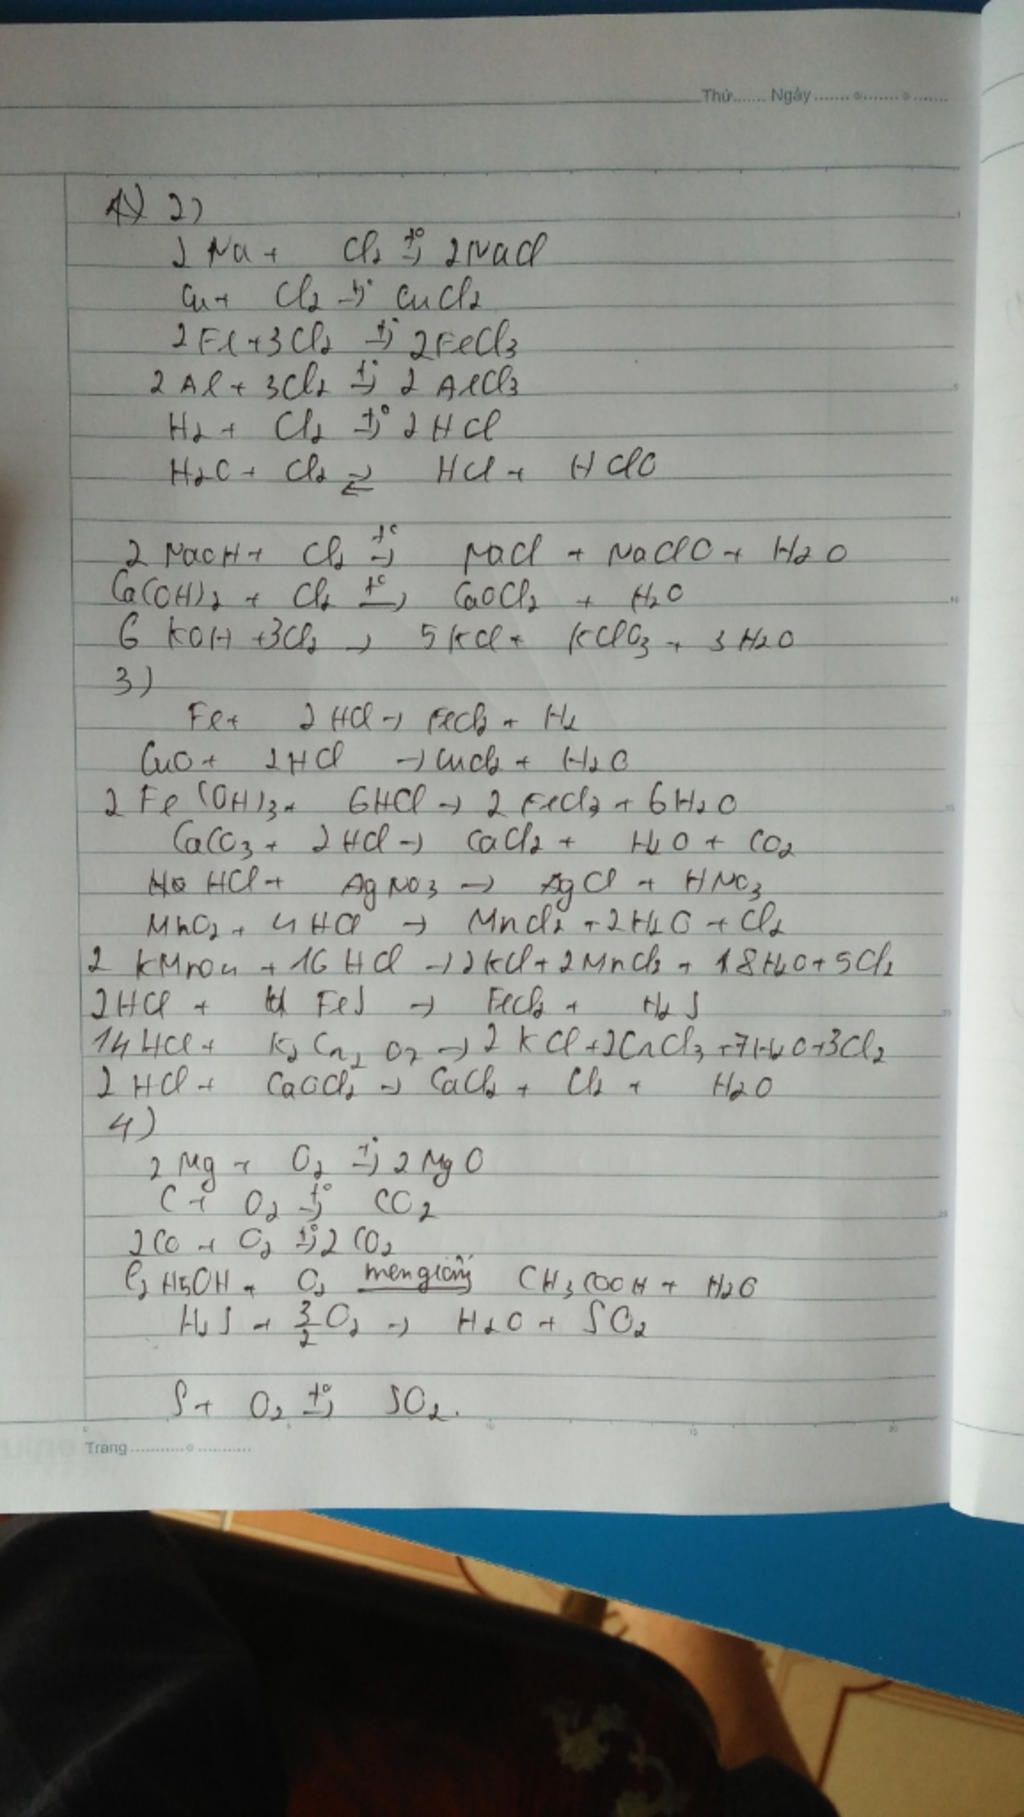 Thứ....... Ngày ....................
1) 2)
2 Na + Cl2 t°→ 2NaCl
Cu + Cl2 t°→ CuCl2
2Fe + 3Cl2 t°→ 2FeCl3
2 Al + 3Cl2 t°→ 2 AlCl3
H2 + Cl2 t°→ 2HCl
H2O + Cl2 ⇌ HCl + HClO
2 NaOH + Cl2 t°→ NaCl + NaClO + H2O
Ca(OH)2 + Cl2 t°→ CaOCl2 + H2O
6 KOH + 3Cl2 → 5KCl + KClO3 + 3H2O
3)
Fe + 2HCl → FeCl2 + H2
CuO + 2HCl → CuCl2 + H2O
2 Fe(OH)3 + 6HCl → 2 FeCl3 + 6H2O
CaCO3 + 2HCl → CaCl2 + H2O + CO2
HCl + AgNO3 → AgCl + HNO3
MnO2 + 4HCl → MnCl2 + 2H2O + Cl2
2 KMnO4 + 16HCl → 2KCl + 2MnCl2 + 18H2O + 5Cl2
2HCl + FeS → FeCl2 + H2S
14HCl + K2Cr2O7 → 2KCl + 2CrCl3 + 7H2O + 3Cl2
2 HCl + CaOCl2 → CaCl2 + Cl2 + H2O
4)
2 Mg + O2 t°→ 2MgO
C + O2 t°→ CO2
2CO + O2 t°→ 2CO2
C2H5OH + O2 men giấm CH3COOH + H2O
H2S + 3/2 O2 → H2O + SO2
S + O2 t°→ SO2.
Trang ....................